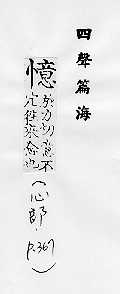 四聲篇海
憶
於力切意不
定往來念也
(心部 p.367)